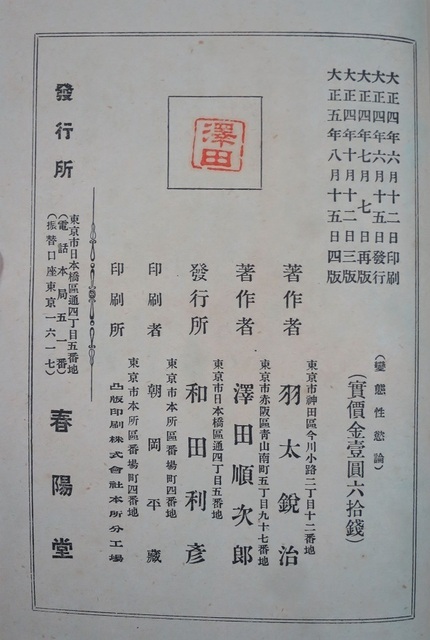 大正四年六月十二日印刷
大正四年六月十五日發行
大正四年七月七日再版
大正四年十月十二日三版
大正五年八月十五日四版
（變態性慾論）
（實價金壹圓六拾錢）
東京市神田區今川小路二丁目十二番地
著作者 羽太銳治
東京市赤阪區青山南町五丁目九十七番地
著作者 澤田順次郎
東京市日本橋區通四丁目五番地
發行所 和田利彥
東京市本所區番場町四番地
印刷者 朝岡平藏
東京市本所區番場町四番地
印刷所 凸版印刷株式會社本所分工場
澤田
東京市日本橋區通四丁目五番地
（電話本局五一番）
（振替口座東京一六一七）
發行所 春陽堂